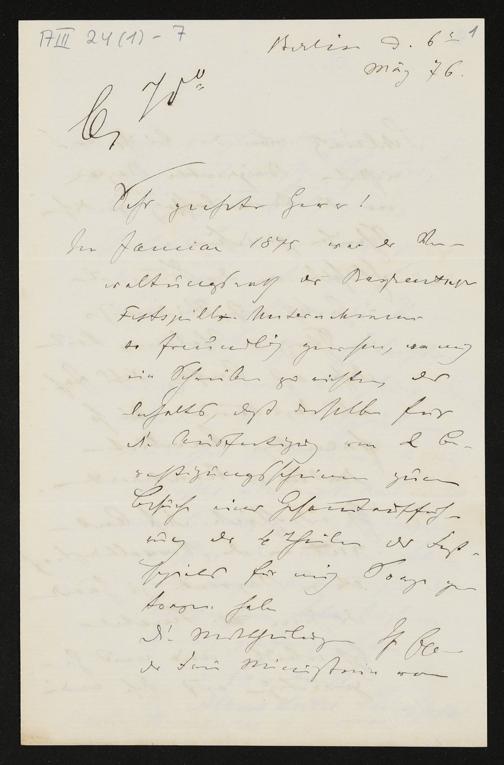 A III 24 (1) - 7
1
Berlin d. 6
März 76.
Sehr geehrter Herr!
Im Januar 1875 war der Ver-
waltungsrath der Bayreuther
Festspiel Unternehmens
so freundlich gewesen, an mich
ein Schreiben zu richten, des
Inhalts, daß derselbe für
die Ausfertigung von 2 Be-
rechtigungsscheinen zum
Besuch einer Gesammtauffüh-
rung der 4 Theile des Fest-
spiels für mich Sorge ge-
tragen habe
die Mittheilung
der Frau Ministerin von